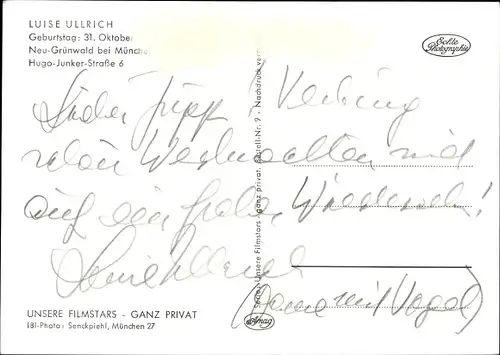 LUISE ULLRICH
Geburtstag: 31. Oktober
Neu-Grünwald bei München
Hugo-Junker-Straße 6
Echte
Photographie
Lieber Jupp!
Weihnachten und
auf ein frohes Wiedersehn!
Luise Ullrich
(Dame mit Vogel)
UNSERE FILMSTARS - GANZ PRIVAT
IBI-Photo: Senckpiehl, München 27
Unsere Filmstars - Ganz privat. Bestell-Nr. 9 - Nachdruck verb
Amag